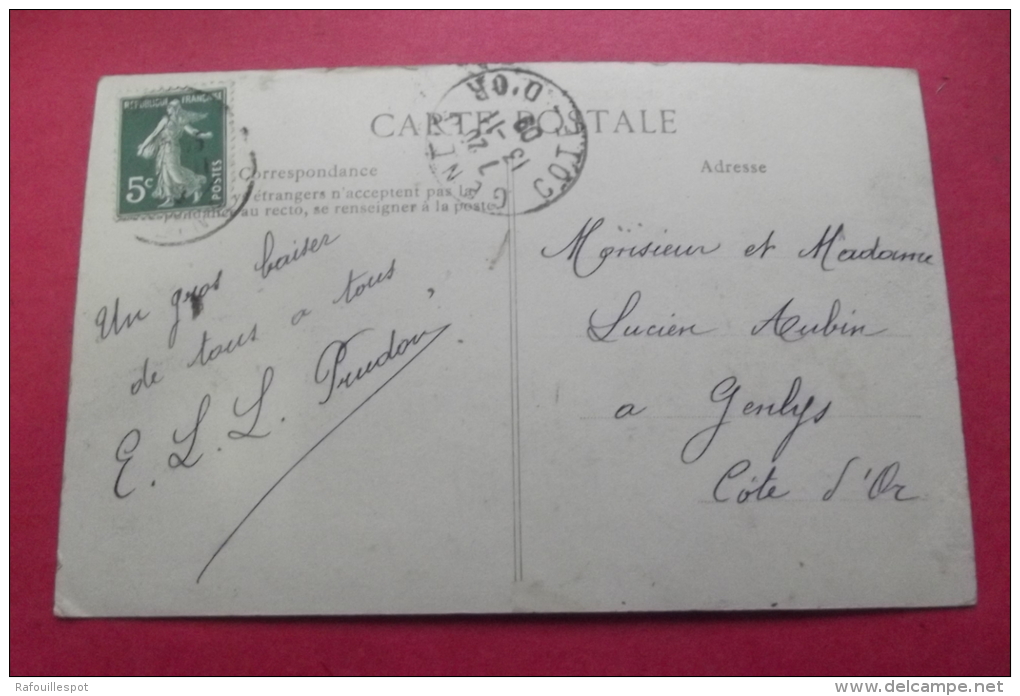 CARTE POSTALE
REPUBLIQUE FRANÇAISE
5c
POSTES
GENLIS
COTE-D'OR
13
7 20
-11
09
Correspondance
étrangers n'acceptent pas la
au recto, se renseigner à la poste
Un gros baiser
de tous a tous
E. L. L. Prudon
Adresse
Monsieur et Madame
Lucien Aubin
a Genlys
Côte d'Or
Rafouillespot
www.delcampe.net